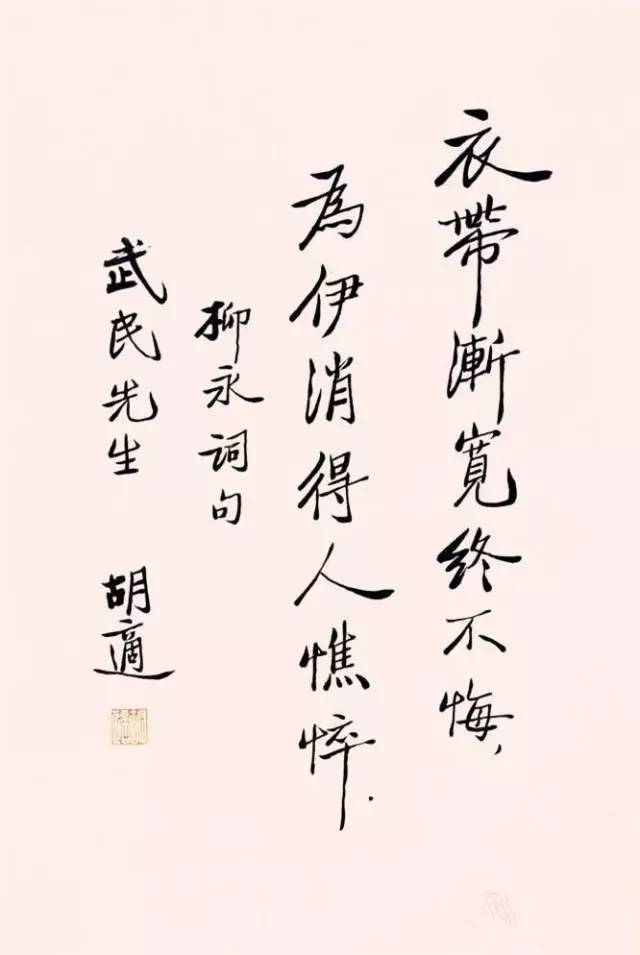 衣帶漸寬終不悔，
為伊消得人憔悴．
柳永詞句
武民先生 胡適